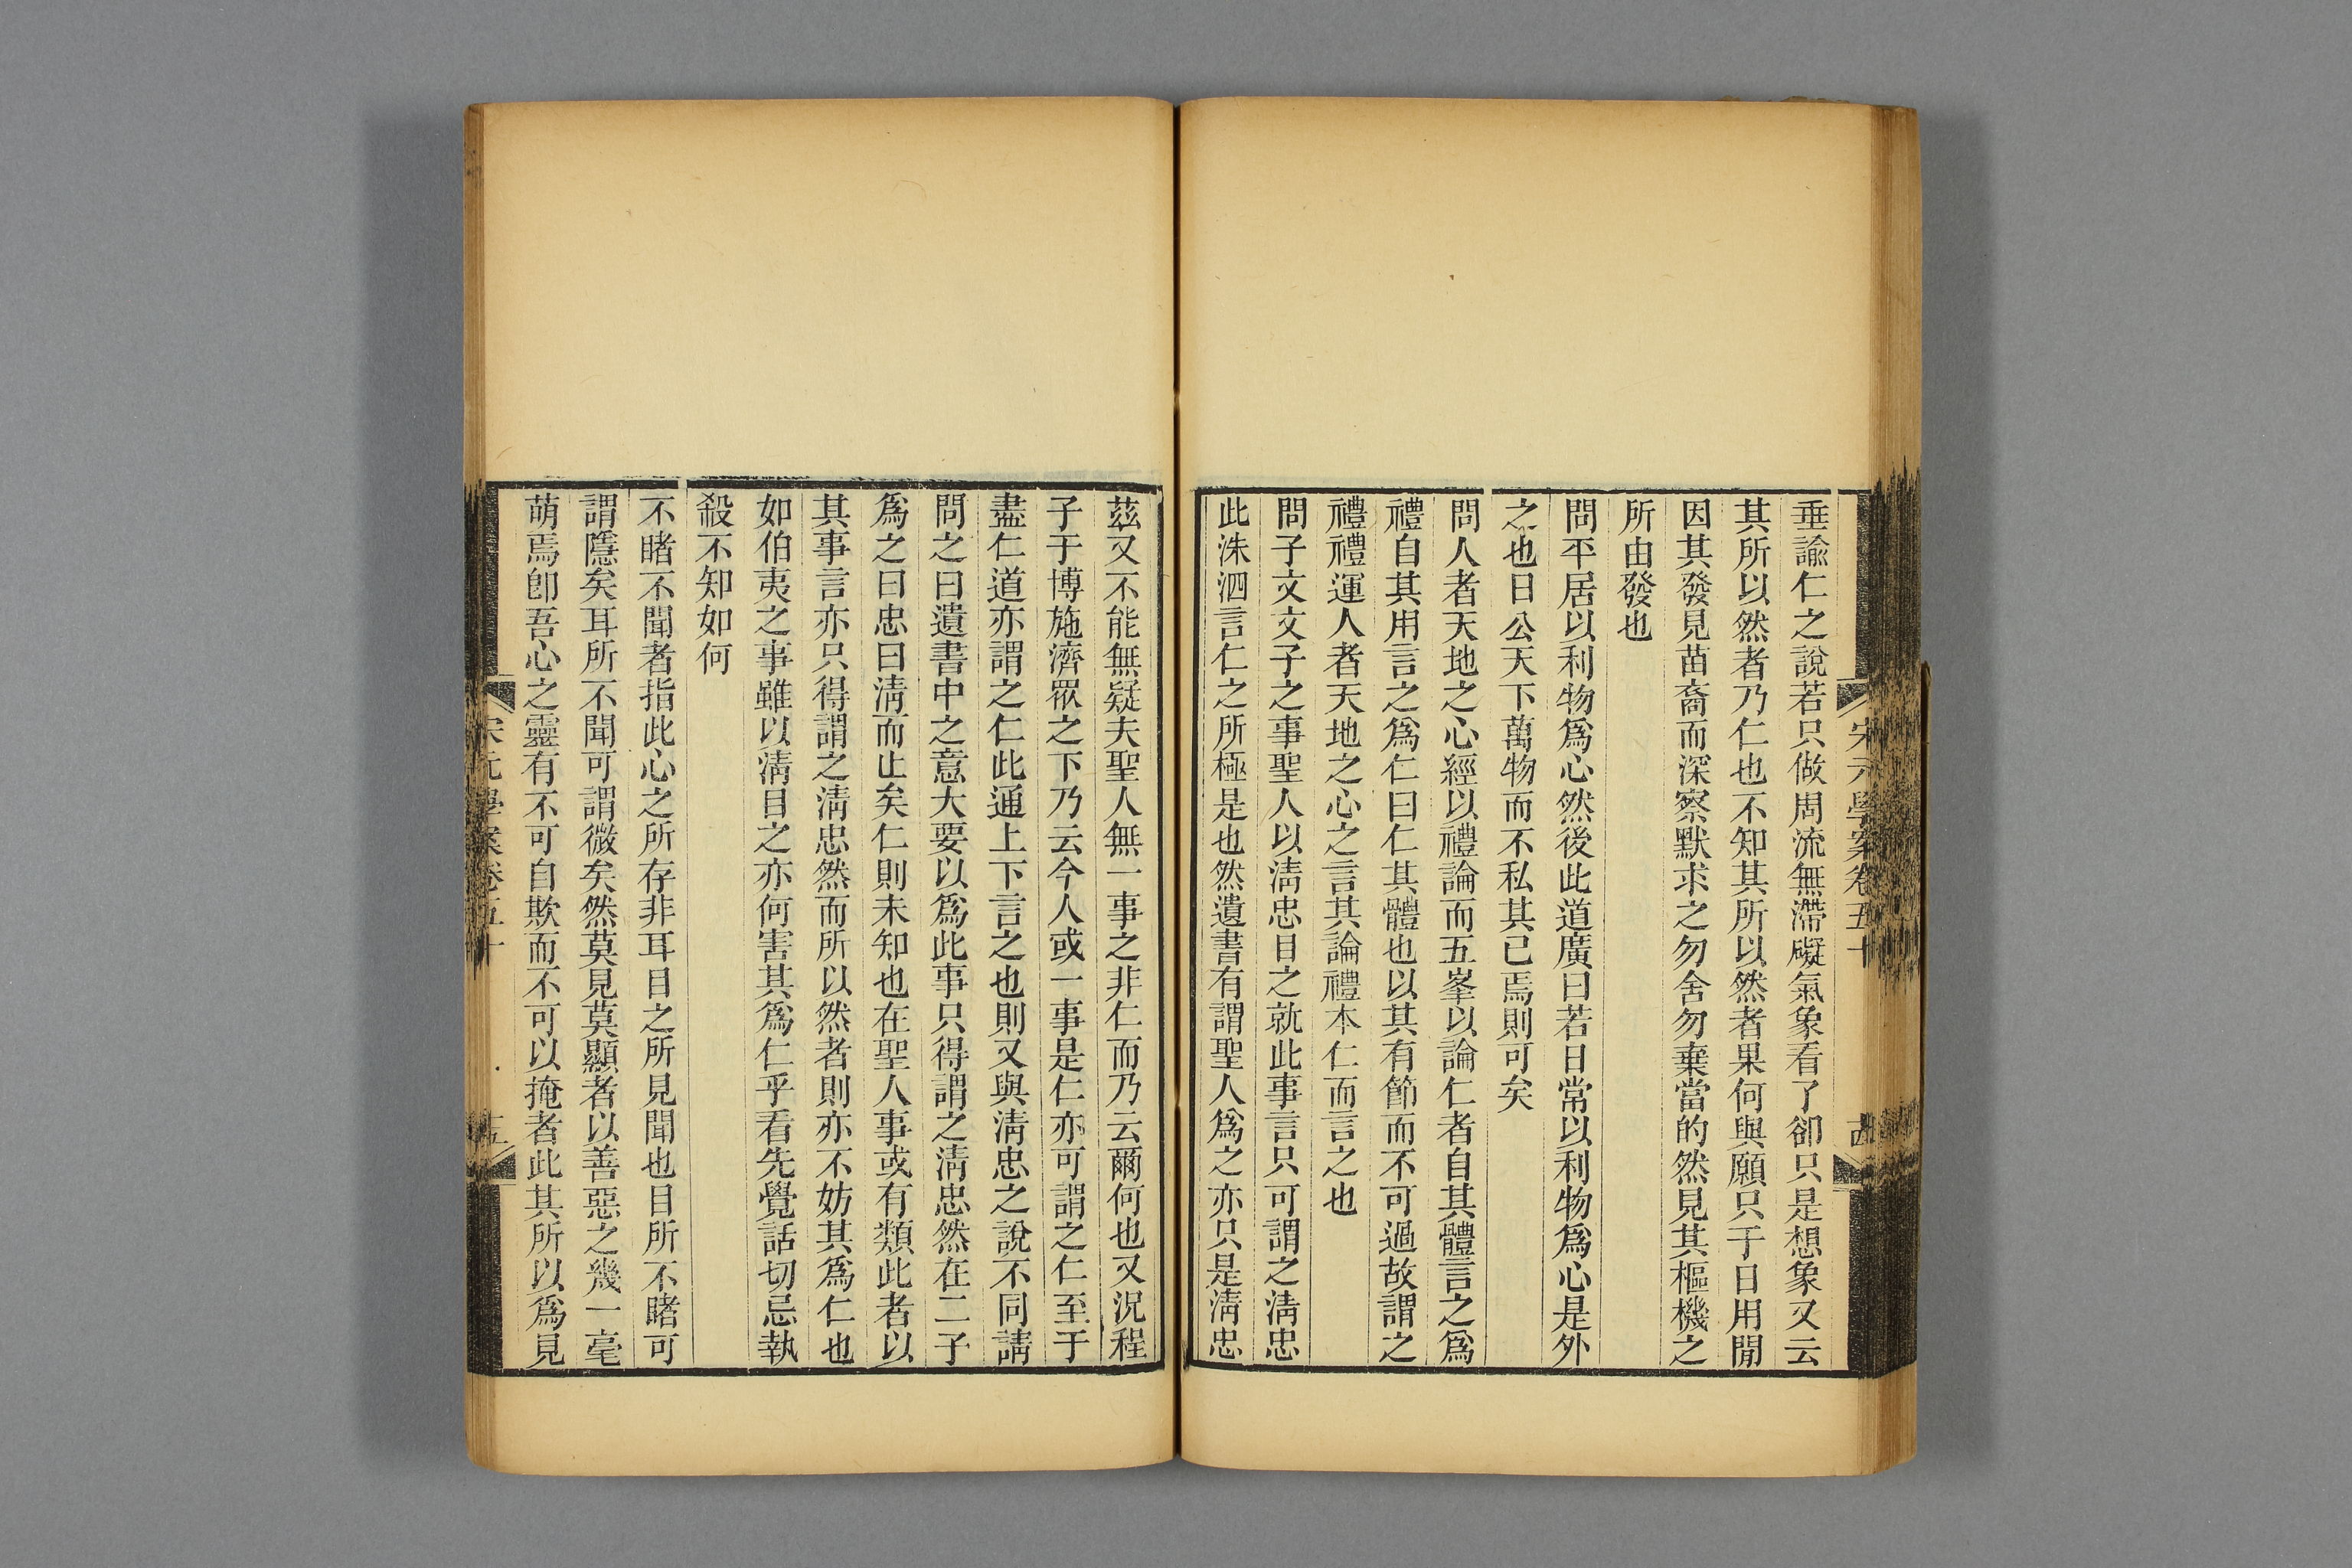 宋元學案卷五十
垂諭仁之說若只做周流無滯礙氣象看了卻只是想象又云
其所以然者乃仁也不知其所以然者果何與願只于日用閒
因其發見苗裔而深察默求之勿舍勿棄當的然見其樞機之
所由發也
問平居以利物爲心然後此道廣曰若日常以利物爲心是外
之也日公天下萬物而不私其已焉則可矣
問人者天地之心經以禮論而五峯以論仁者自其體言之爲
禮自其用言之爲仁曰仁其體也以其有節而不可過故謂之
禮禮運人者天地之心之言其論禮本仁而言之也
問子文文子之事聖人以淸忠目之就此事言只可謂之淸忠
此洙泗言仁之所極是也然遺書有謂聖人爲之亦只是淸忠
茲又不能無疑夫聖人無一事之非仁而乃云爾何也又況程
子于博施濟眾之下乃云今人或一事是仁亦可謂之仁至于
盡仁道亦謂之仁此通上下言之也則又與淸忠之說不同請
問之曰遺書中之意大要以爲此事只得謂之淸忠然在二子
爲之曰忠曰淸而止矣仁則未知也在聖人事或有類此者以
其事言亦只得謂之淸忠然而所以然者則亦不妨其爲仁也
如伯夷之事雖以淸目之亦何害其爲仁乎看先覺話切忌執
殺不知如何
不睹不聞者指此心之所存非耳目之所見聞也目所不睹可
謂隱矣耳所不聞可謂微矣然莫見莫顯者以善惡之幾一毫
萌焉卽吾心之靈有不可自欺而不可以掩者此其所以爲見
宋元學案卷五十